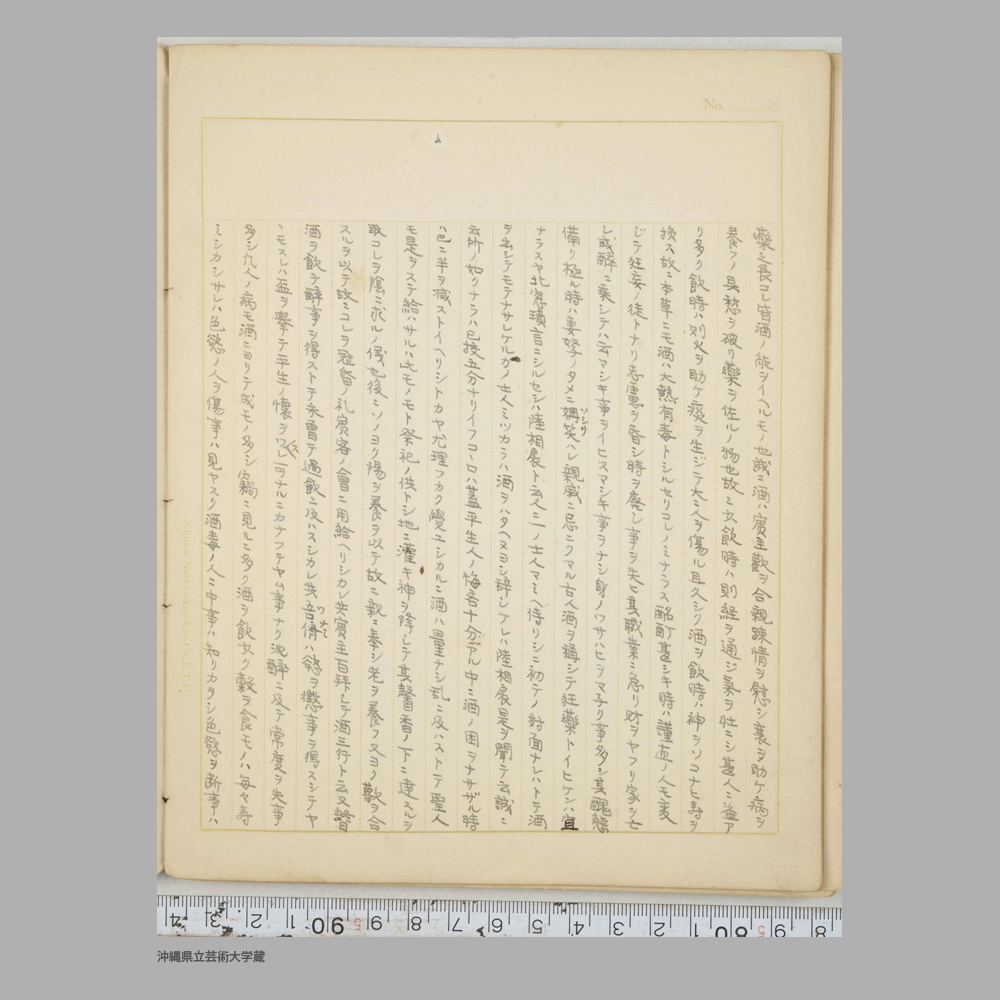 No.
藥之長コレ皆酒ノ能ヲイヘルモノ也誠ニ酒ハ賓主歡ヲ合親疎情ヲ慰シ衰ヲ助ケ病ヲ
養フノ具愁ヲ破リ藥ヲ佐ルノ物也故ニ少飲時ハ則経ヲ通ジ氣ヲ壮ニシ甚人ニ益ア
リ多ク飲時ハ則火ヲ助ケ痰ヲ生ジテ大ニ人ヲ傷ル且久シク酒ヲ飲時ハ神ヲソコナヒ壽ヲ
損ス故ニ本草ニモ酒ハ大熱有毒トシルセリコレノミナラス酩酊甚シキ時ハ謹直ノ人モ変
ジテ狂妄ノ徒トナリ志慮ヲ昏シ時ヲ廃シ事ヲ失ヒ其職業ニ怠リ財ヲヤフリ家ヲ亡
シ或醉ニ乗シテハ云マシキ事ヲイヒスマシキ事ヲナシ身ノワサハヒヲマネク事多シ其醜態
備リ極ル時ハ妻孥ノタメニ誹笑ヘレ親戚ニ忌ニクマル古人酒ヲ稱シテ狂藥トイヒケンハ宜
ナラスヤ北窓瑣言ニシルセシハ陸相扆ト云人一ノ士人マミヘ侍リシニ初テノ対面ナレハトテ酒
ヲ出シテモテナサレケルカノ士人ミツカラハ酒ヲハタヘヌヨシ辞シケレハ陸相扆是ヲ聞テ云誠ニ
云所ノ如クナラハ已按五分ナリイフコヽロハ蓋平生人ノ悔吝十分アル中ニ酒ノ困ヲナサザル時
ハ已ニ半ヲ減ストイヘリシトカヤ尤理フカク覺ユシカルニ酒ハ量ナシ乱ニ及ハストテ聖人
モ是ヲステ給ハサルハ此モノモト祭祀ノ供トシ地ニ灌キ神ヲ降シテ其馨香ノ下ニ達スルヲ
取コレヲ陰ニ求ルノ儀也後ニソノヨク陽ヲ養ヲ以テ故ニ親ニ奉シ老ヲ養フ又ヨク歡ヲ合
スルヲ以テ故ニコレヲ冠昏ノ礼賓客ノ會ニ用給ヘリシカレ共賓主百拜シテ酒三行ト云又終日
酒ヲ飲テ醉事ヲ得ストテ未曾テ過飲ニ及ハスシカレ共吾儕ハ慾ヲ懲事ヲ得スシテヤ
ヽモスレハ盃ヲ擧テ平生ノ懐ヲワスレ一時ナルニカナフテヤム事ナク沈醉ニ及テ常度ヲ失事
多シ凡人ノ病モ酒ニヨリテ成モノ多シ窃ニ見ルニ多ク酒ヲ飲少ク穀ヲ食モノハ毎々壽
ミシカシサレハ色慾ノ人ヲ傷事ハ見ヤスク酒毒ノ人ニ中事ハ知リカタシ色慾ヲ断事ハ
沖縄県立芸術大学蔵